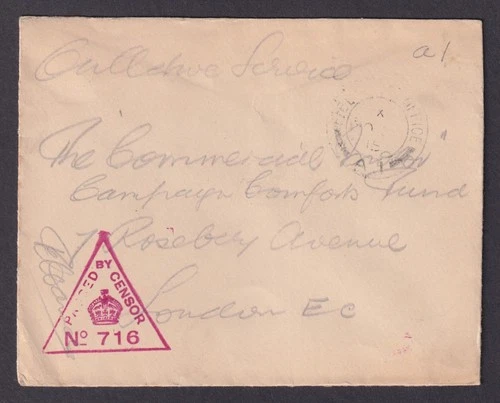 a/
Service
The Commercial
Campaign Comforts Fund
7 Rosebery Avenue
London EC
PASSED BY CENSOR
No 716